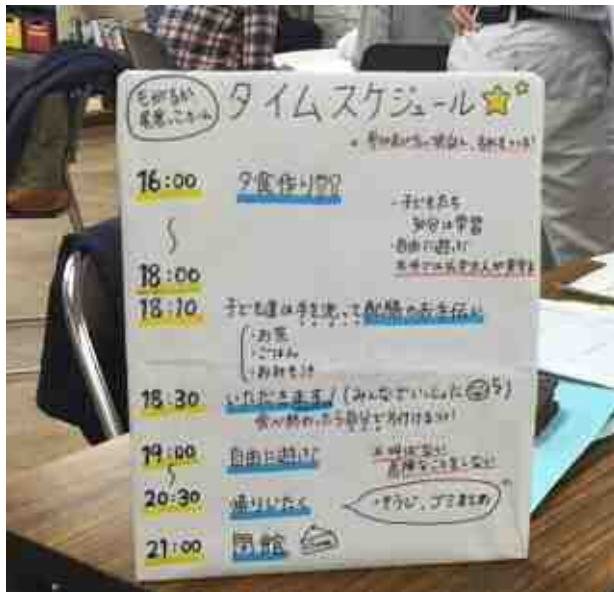 タイムスケジュール
16:00 夕食作り
・子どもたち
30分は学習
・自由に遊ぶ
〜
18:00
18:10 子ども達は手を洗って配膳のお手伝い
・お茶
・ごはん
・おみそ汁
18:30 いただきます!(みんなでいっしょに
食べ終わったら自分で片付ける
19:00 自由に遊ぶ
〜
危険なことをしない
20:30 帰りじたく
・そうじ、ゴミまとめ
21:00 閉館